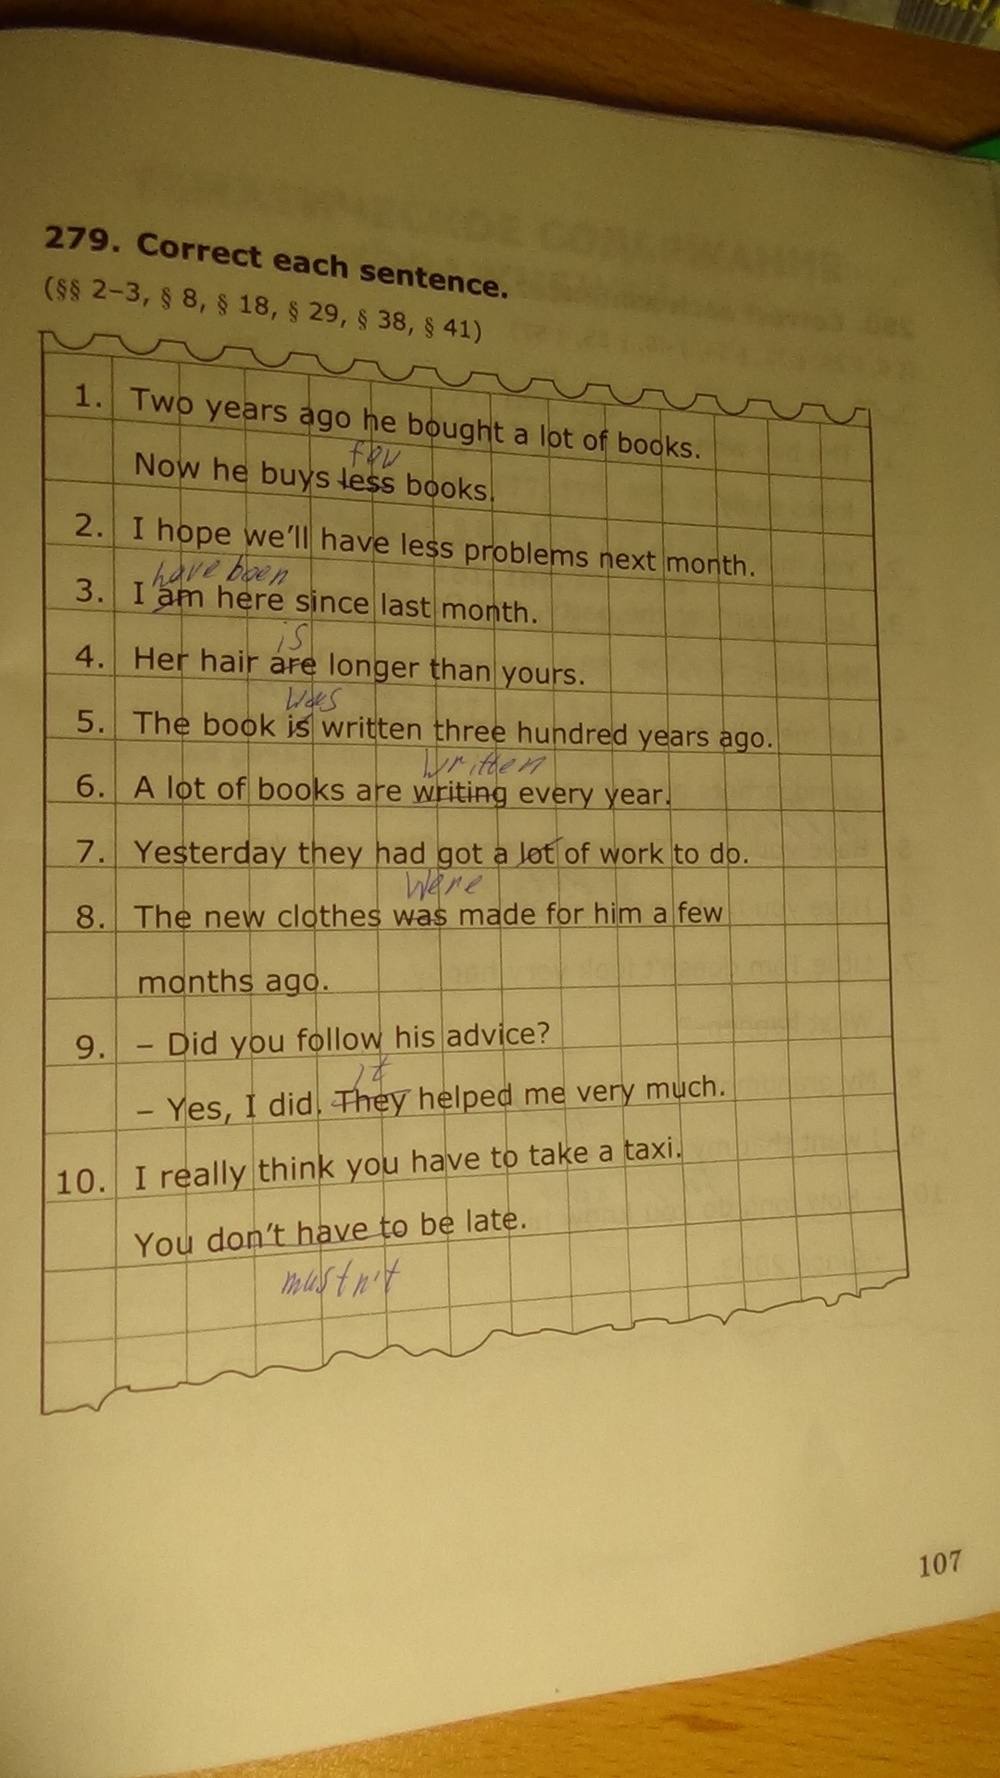 279. Correct each sentence.
(§§ 2–3, § 8, § 18, § 29, § 38, § 41)
1. Two years ago he bought a lot of books.
few
Now he buys less books.
2. I hope we'll have less problems next month.
have been
3. I am here since last month.
is
4. Her hair are longer than yours.
was
5. The book is written three hundred years ago.
written
6. A lot of books are writing every year.
7. Yesterday they had got a lot of work to do.
were
8. The new clothes was made for him a few
months ago.
9. – Did you follow his advice?
it
– Yes, I did. They helped me very much.
10. I really think you have to take a taxi.
You don't have to be late.
mustn't
107